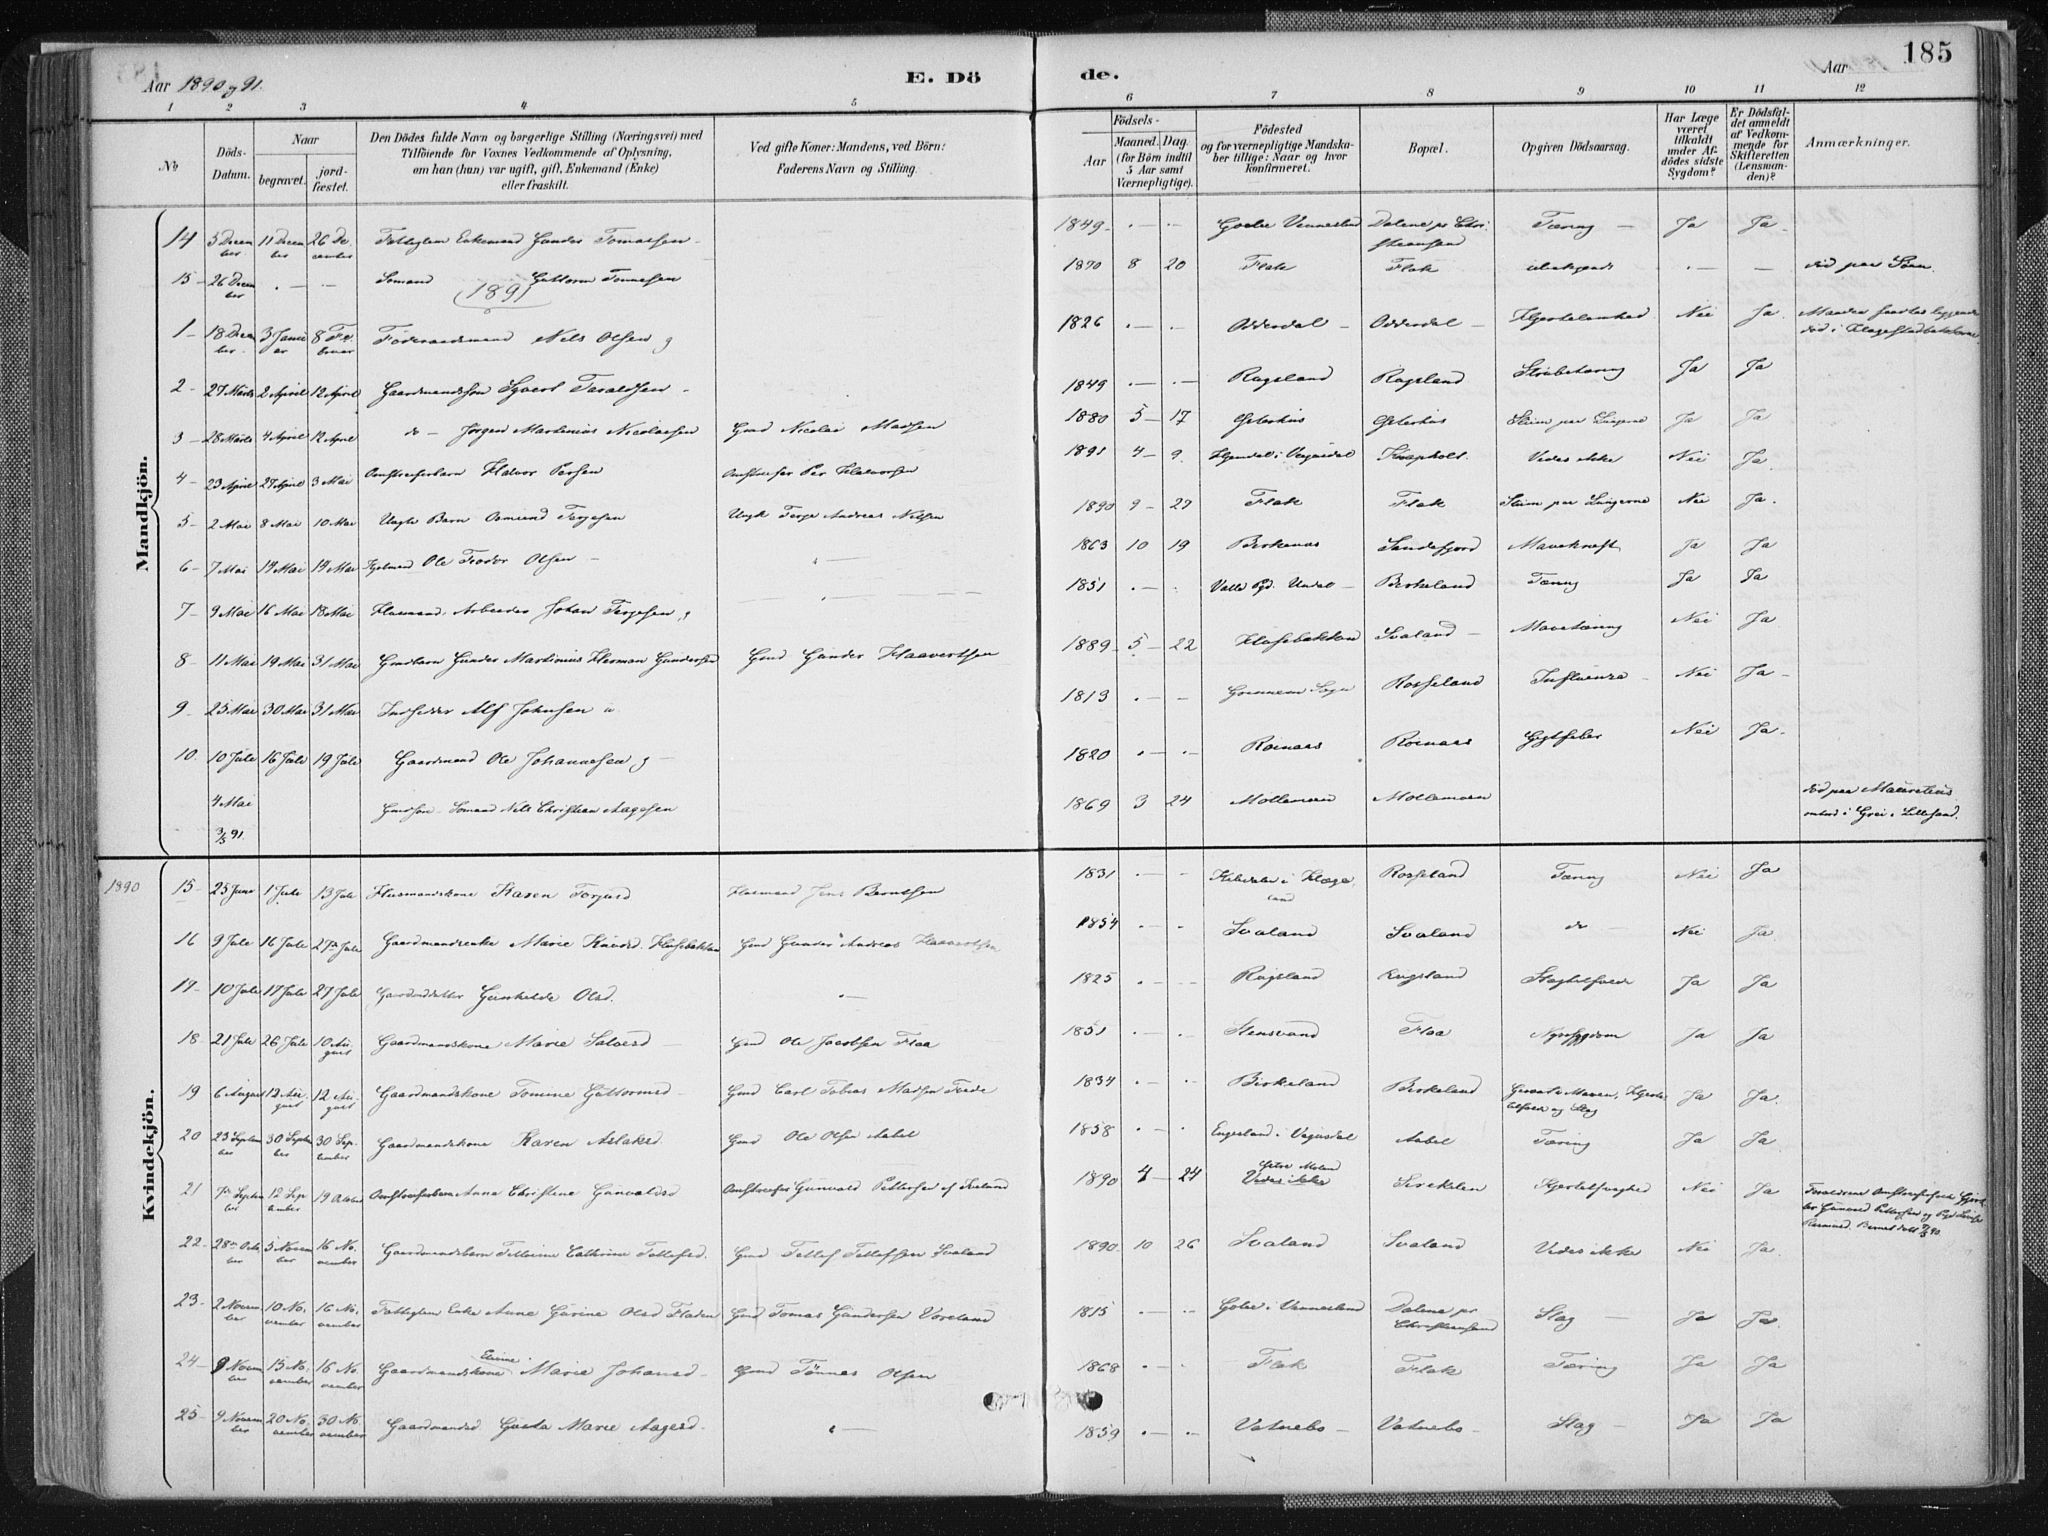 Aar 1890 og 91. E. Dö de. Aar 185
1 2 3 4 5 6 7 8 9 10 11 12
No
Döds-Datum.
Naar
begravet.
jordfæstet.
Den Dödes fulde Navn og borgerlige Stilling (Næringsvei) med
Tilföiende for Voxnes Vedkommende af Oplysning,
om han (hun) var ugift, gift, Enkemand (Enke)
eller fraskilt.
Ved gifte Koner: Mandens, ved Börn:
Faderens Navn og Stilling.
Födsels-
Aar
Maaned. Dag.
(for Börn indtil
5 Aar samt
Værnepligtige).
Födested
og for værnepligtige Mandskaber tillige: Naar og hvor
konfirmeret.
Bopæl.
Opgiven Dödsaarsag.
Har Læge
været
tilkaldt
under Afdödes sidste
Sygdom?
Er Dödsfaldet anmeldt
af Vedkommende for
Skifteretten
(Lensmanden)?
Anmærkninger.
Mandkjön.
14 3 Decem ber 11 Decem ber 26 De cember Fattiglem Enkemand Gunder Tomassen 1849 Vennesland Dalene pr Chri stiansand Tæring Ja Ja
15 26 Decem ber Sömand Guttorm Tönnesen 1870 8 20 Flak Flak ubekjendt död paa Söen
1891
1 18 Decem ber 3 Janu ar 8 Fe bruar Föderaadsmand Nels Olsen g 1826 Odderdal Odderdal Nei Ja Manden
2 27 Marts 2 April 12 April Gaardmandssön Syvert Taraldsen 1849 Rugsland Rugsland Ja Ja
3 28 Marts 4 April 12 April do Jörgen Martinius Nicolaisen Gmd Nicolai Madsen 1880 5 17 Oterhus Oterhus Sliim paa Lungerne Ja Ja
4 23 April 27 April 3 Mai Omstreiferbarn Halvor Persen Omstreifer Per Halvorsen 1891 4 9 Vegusdal Knapholt Vides ikke Nei Ja
5 2 Mai 8 Mai 10 Mai Ungk Barn Osmund Terjesen Ungk Terje Andreas Nilsen 1890 9 27 Flak Flak Sliim paa Lungerne Nei Ja
6 7 Mai 14 Mai 14 Mai Ole Teodor Olsen 1863 10 19 Birkenes Sandefjord Mavekræft Ja Ja
7 9 Mai 16 Mai 18 Mai Huusmand Arbeider Johan Terjesen g 1851 Valle Pgd. Undal Birkeland Tæring Ja Ja
8 11 Mai 19 Mai 31 Mai Gmdbarn Gunder Martinius Herman Gundersen Gmd Gunder Haavorsen 1889 5 22 Svaland Mavetæring Nei Ja
9 25 Mai 30 Mai 31 Mai Indsidder Alf Johnsen 1813 Sogn Rosseland Influenza Nei Ja
10 10 Jule 16 Jule 19 Jule Gaardmand Ole Johannesen g 1820 Roenaas Roenaas Gigtfeber Nei Ja
4 Mai 3/5 91 Gmdssön Sömand Nils Christian Aagesen 1869 3 24 Mollemoen Mollemoen död paa Lillesand
1890
Kvindekjön.
15 25 June 1 Jule 13 Jule Husmandskone Karen Torjusd Husmand Jens Berntsen 1831 Rosseland Tæring Nei Ja
16 9 Jule 16 Jule 27 Jule Gaardmandsenke Marie Knudsd. Gmd Gunder Andreas Haavorsen 1854 Svaland Svaland do Nei Ja
17 10 Jule 17 Jule 27 Jule Gaardmddatter Gunhilde Olsd. 1825 Rugsland Rugsland Slagtilfælde Ja Ja
18 21 Jule 26 Jule 10 Au gust Gaardmandskone Marie Salvesd Gmd Ole Jacobsen Flaa 1851 Stensvand Flaa Nyresygdom Ja Ja
19 6 August 12 Au gust 12 Au gust Gaardmandskone Tomine Guttormsd Gmd Carl Tobias Madsen Frede 1834 Birkeland Birkeland og Slag Ja Ja
20 23 Septem ber 30 Septem ber 30 Sep tember Gaardmandskone Karen Aslaksd. Gmd Ole Olsen Aabel 1858 Engesland i Vegusdal Aabel Tæring Ja Ja
21 7 Septem ber 12 Sep tember 19 October Omstreiferbarn Anna Christine Gunvaldsd Omstreifer Gunvald Pettersen af 1890 4 24 Vides ikke Hjertesvaghed Nei Ja
22 28 Octo ber 5 Novem ber 16 No vember Gaardmandsbarn Tellevine Cathrine Tellefsd. Gmd Tellef Tellefssen Svaland 1890 10 26 Svaland Svaland Vides ikke Nei Ja
23 2 Novem ber 10 No vember 16 No vember Fattiglem Enke Anne Gurine Olsd Gmd Tomas Gundersen Voreland 1815 Vennesland Dalene pr Christiansand Slag Ja Ja
24 9 Novem ber 15 No vember 16 No vember Gaardmandskone Marie Johansd Gmd Tönnes Olsen 1868 Flak Flak Tæring Ja Ja
25 9 Novem ber 20 No vember 30 No vember Gaardmandsd Gusta Marie Aagesd. 1859 Vatnebo Vatnebo Slag Ja Ja